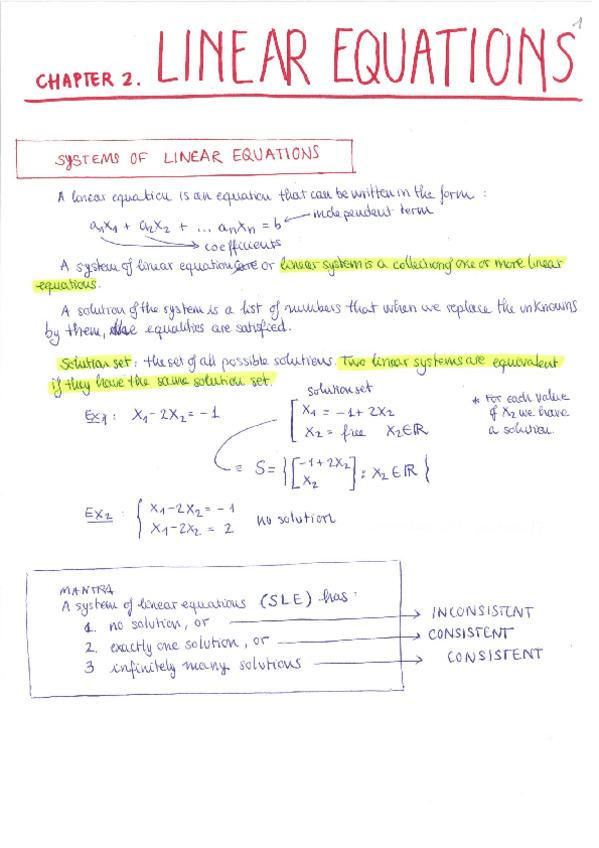 1
CHAPTER 2. LINEAR EQUATIONS
SYSTEMS OF LINEAR EQUATIONS
A linear equation is an equation that can be written in the form :
a₁x₁ + a₂x₂ + ... aₙxₙ = b ← independent term
→ coefficients
A system of linear equation or linear system is a collection of one or more linear
equations.
A solution of the system is a list of numbers that when we replace the unknowns
by them, the equalities are satisfied.
Solution set : the set of all possible solutions. Two linear systems are equivalent
if they have the same solution set.
solution set
Ex₁ : x₁ - 2x₂ = -1
[ x₁ = -1 + 2x₂
x₂ = free x₂∈ℝ
* For each value
of x₂ we have
a solution.
≡ S = { [ -1+2x₂
x₂ ] : x₂ ∈ ℝ }
Ex₂ : { x₁ - 2x₂ = -1
x₁ - 2x₂ = 2 no solution
MANTRA
A system of linear equations (SLE) has :
1. no solution, or → INCONSISTENT
2. exactly one solution, or → CONSISTENT
3 infinitely many solutions → CONSISTENT